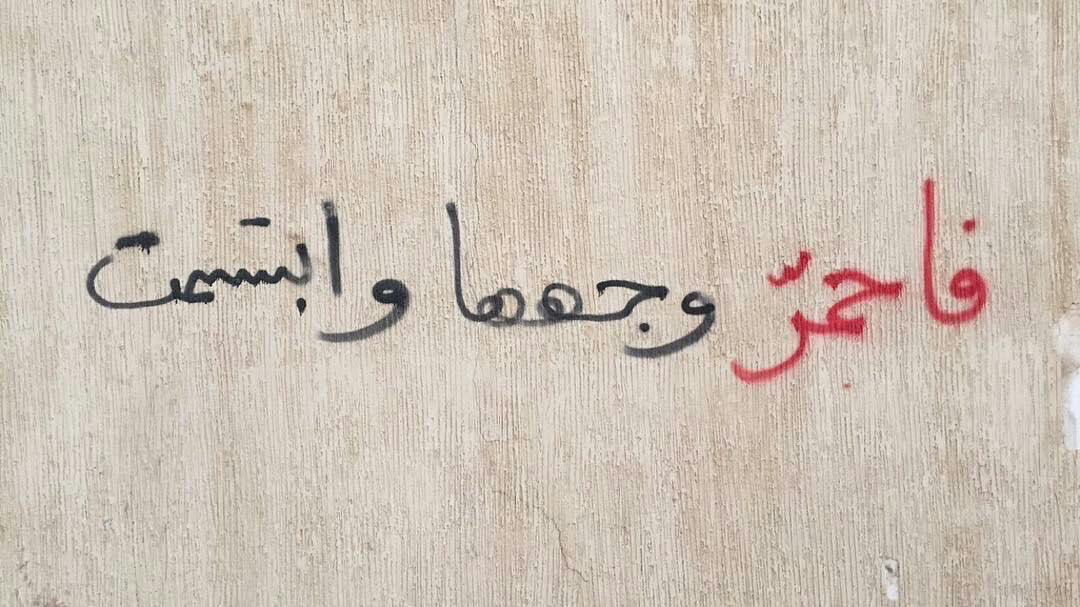 فاحمرّ وجهها وابتسمت